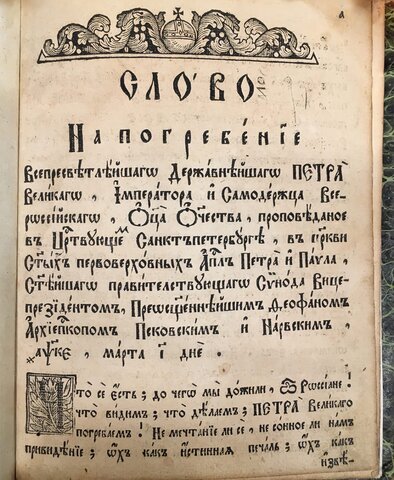 а
СЛО́ВО
На погребе́нїе
Всепресвѣтлѣ́йшагѡ Держа́внѣйшагѡ ПЕТРА̀
Вели́кагѡ, І҆мпера́тора и҆ Самоде́ржца Все-
рѡссі́йскагѡ, Ѻ҆ц҃а̀ Ѻ҆те́чества, проповѣ́даное
въ Ца́рствующемъ Санктъпетербу́ргѣ, въ цр҃кви
ст҃ы́хъ первоверхо́вныхъ А҆пⷭ҇лъ Петра̀ и҆ Па́ѵла,
Ст҃ѣ́йшаго прави́телствующаго Сѷно́да Вице-
презїде́нтомъ, Преѡсщ҃е́ннѣйшимъ Ѳеофа́номъ
А҆рхїеп҃копомъ Пско́вскимъ и҆ На́рвскимъ,
҂аѱке, ма́рта и҃ днѐ.
Что̀ сѐ є҆́сть; до чегѡ̀ мы̀ до́жили, ѽ Рѡссїа́не!
что̀ ви́димъ; что̀ дѣ́лаемъ; ПЕТРА̀ Вели́каго
погреба́емъ! Не мечта́нїе ли сѐ, не со́нное ли на́мъ
привидѣ́нїе; ѽхъ ка́къ и҆́стинная печа́ль; ѽхъ ка́къ
и҆звѣ́-